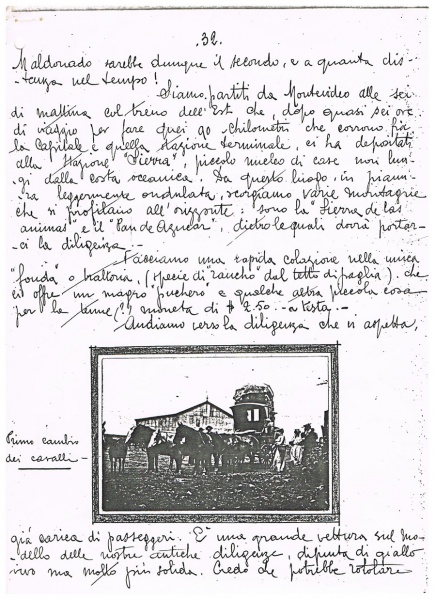 .32.
Maldonado sarebbe dunque il secondo, e a quanta dis-
-tanza nel tempo!
Siamo partiti da Montevideo alle sei
di mattina col treno dell'Est che, dopo quasi sei ore
di viaggio per fare quei 90 chilometri che corrono fra
la Capitale e quella stazione terminale, ci ha depositati
alla stazione "Sierra", piccolo nucleo di case non lun-
gi dalla costa oceanica. Da questo luogo, in pianu-
ra leggermente ondulata, scorgiamo varie montagne
che si profilano all'orizzonte: sono la "Sierra de las
animas" e il "Pan de Azucar", dietro le quali dovrà portar-
ci la diligenza.-
Facciamo una rapida colazione nella unica
"fonda" o trattoria, (specie di rancho dal tetto di paglia) che
ci offre un magro "puchero" e qualche altra piccola cosa
per la lieve (!) moneta di $ 2.50.- a testa.-
Andiamo verso la diligenza che ci aspetta,
Primo cambio
dei cavalli -
già carica di passeggeri. E' una grande vettura sul mo-
dello delle nostre antiche diligenze, dipinta di giallo
vivo ma molto più solida. Credo che potrebbe rotolare